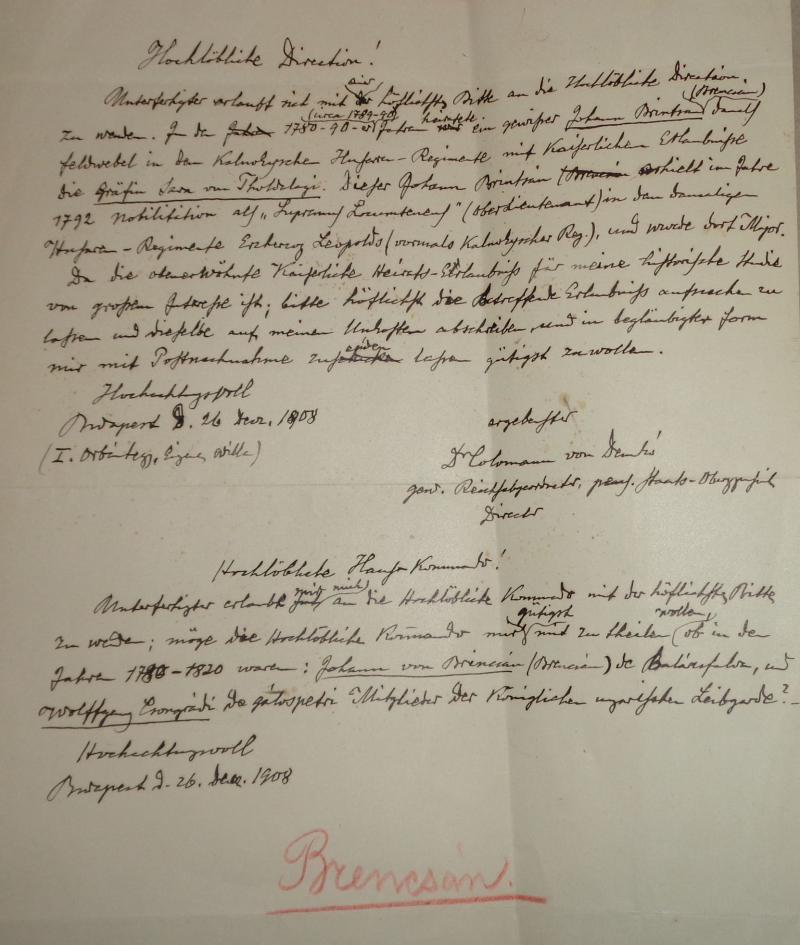 Hochlöbliche Direction!
Unterfertigter erlaubt sich mit der einer höflichsten Bitte an die Hochlöbliche Direction
zu wenden. In den Jahren (circa 1789-90) 1780-90-er Jahren heirathete ein gewißer Johann Brintsan (Brencsán) damals
feldwebel in dem Kalnokyschen Husaren-Regimente mit Kaiserlichen Erlaubniße
die Gräfin Sara von Tholdalagi. Dieser Johann Brintsán (Brencsán erhielt im Jahre
1792 nobilitition als „Supremus Locumtenens" (Oberlieutenant) in dem damaligen
Husaren-Regimente Erzherzog Leopolds (vormals Kalnokyscher Reg.), und wurde dort Major.
Da die obenerwähnte Kaiserliche Heiraths-Erlaubniß für meine historische Studie
von großem Interesse ist; bitte höflichst die betreffende Erlaubniß aufsuchen zu
laßen und dieselbe auf meinen Unkosten abschreiben, und in begläubigter form
mir mit Postnachnahme zuschicken senden laßen gütigst zu wollen.
Hochachtungsvoll
Budapest d. 26 Dez. 1908
(I. Orbánhegy, Eigene Villa)
ergebenster
Dr Colomann von Demkó
gew. Reichstagsabgeordneter, pens. Staats-
Director
Hochlöbliche Haupt Kommando!
Unterfertigter erlaubt mir mich an die Hochlöbliche Kommando mit der höflichsten Bitte
zu wenden; möge die Hochlöbliche Kommando mir gütigst mit zu theilen wollen, ob in den
Jahren 1780-1820 waren: Johann von Brencsán (Brencsán) de Balázsfalva, und
Wolffgang Csongrádi de gálospetri Mitglieder der Königlichen ungarischen Leibgarde?
Hochachtungsvoll
Budapest d. 26. Dez. 1908
Brencsán.